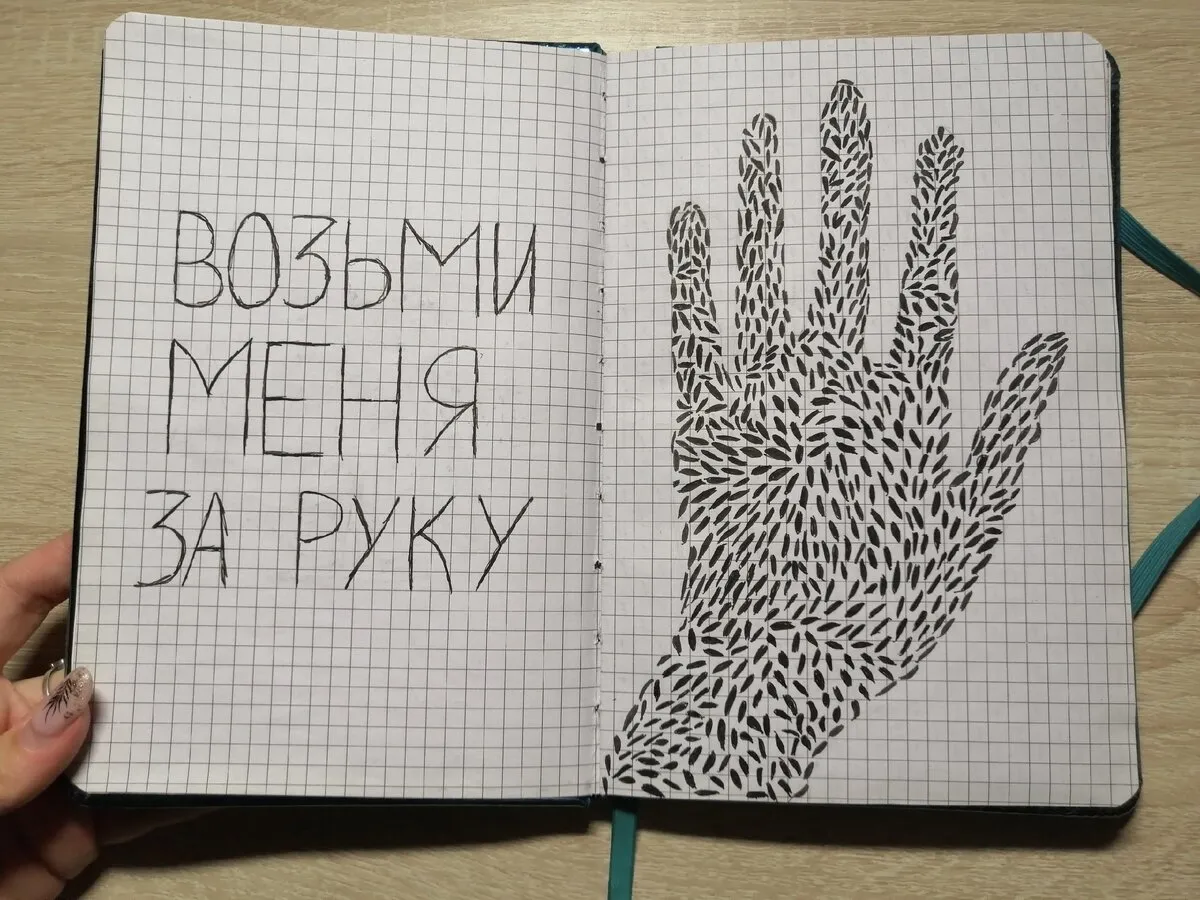 ВОЗЬМИ
МЕНЯ
ЗА РУКУ